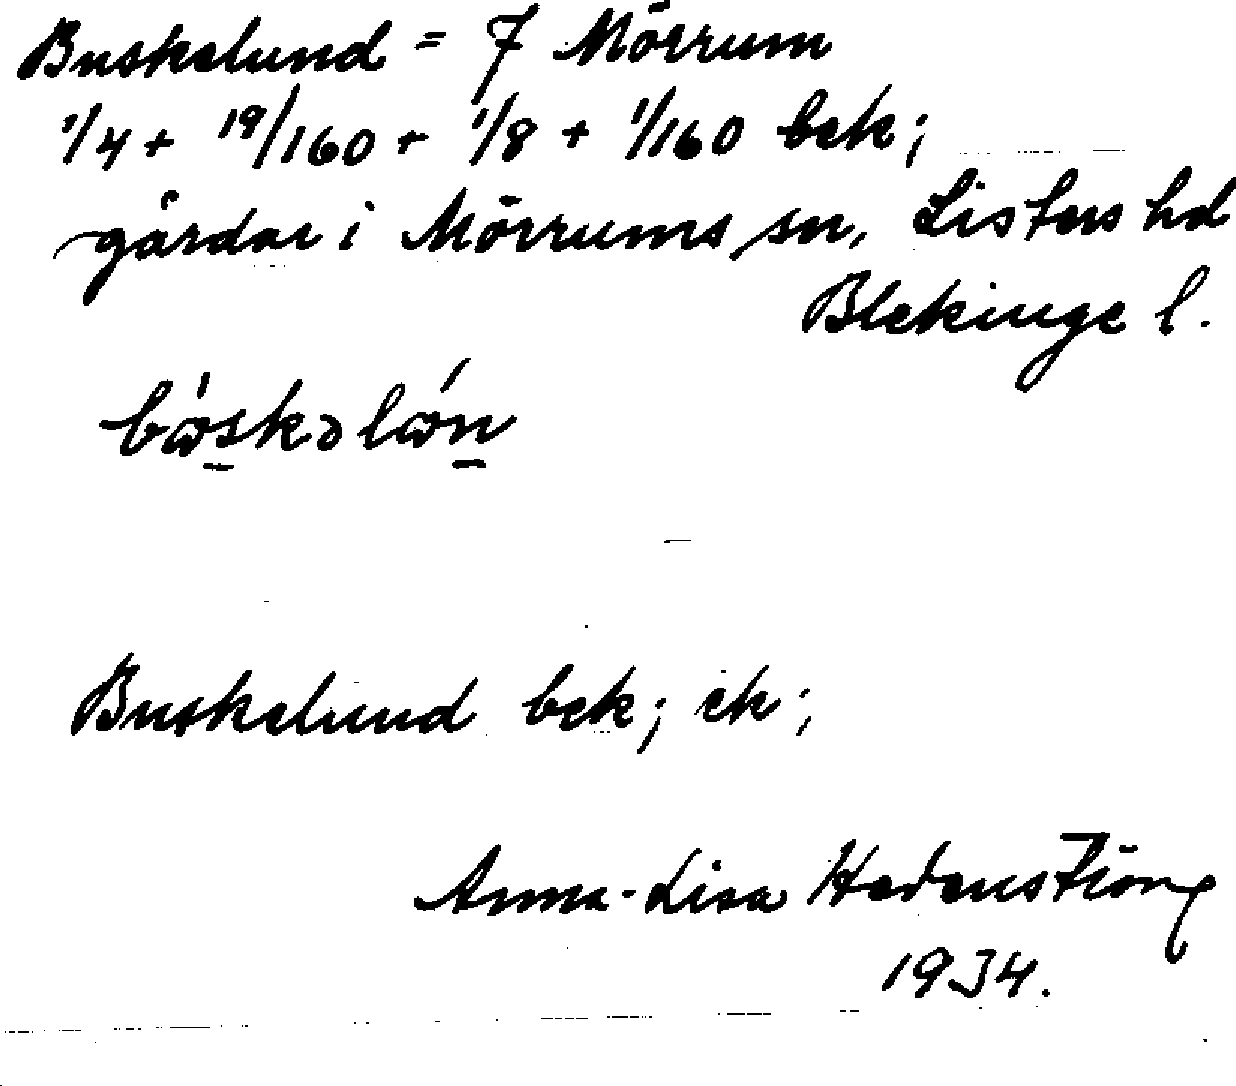 Buskelund = 7 Mörrum
1/4 + 19/160 + 1/8 + 1/160 bek;
gårdar i Mörrums sn, Listers hd
Blekinge l.
Buskelund bek; ek;
Anna-Lisa Hedenström
1934.